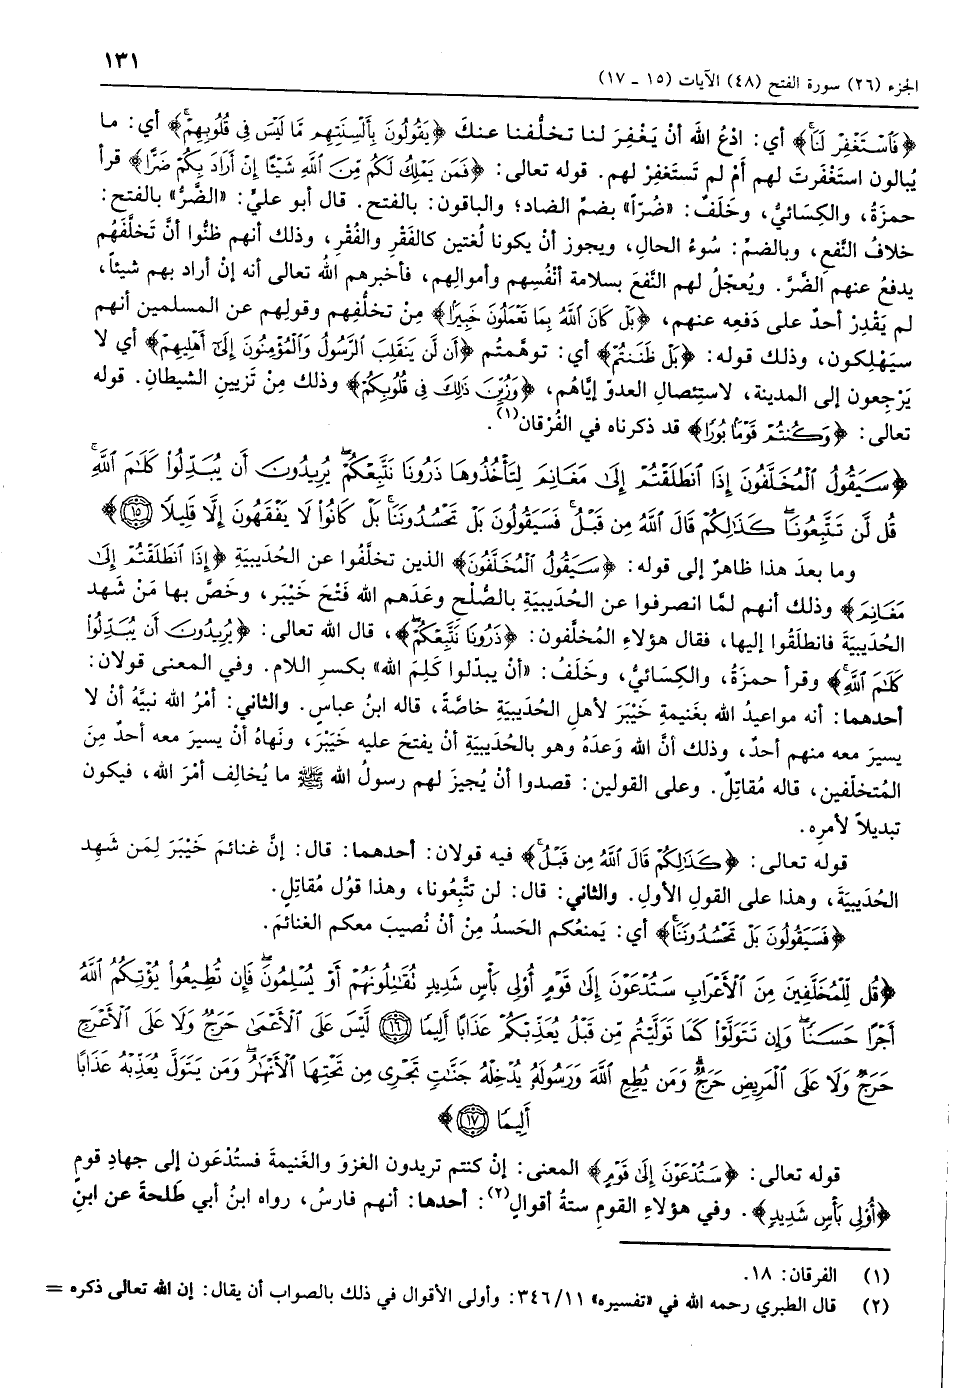 ١٣١
الجزء (٢٦) سورة الفتح (٤٨) الآيات (١٥ ـ ١٧)
﴿فَاسْتَغْفِرْ لَنَا﴾ أي: ادْعُ الله أنْ يَغْفِرَ لنا تخلُّفنا عنكَ ﴿يَقُولُونَ بِأَلْسِنَتِهِم مَّا لَيْسَ فِي قُلُوبِهِمْ﴾ أي: ما
يُبالون استَغْفَرتَ لهم أمْ لم تَستَغفِرْ لهم. قوله تعالى: ﴿فَمَن يَمْلِكُ لَكُم مِّنَ اللَّهِ شَيْئًا إِنْ أَرَادَ بِكُمْ ضَرًّا﴾ قرأ
حمزةُ، والكِسَائيُّ، وخَلَفٌ: «ضُرّاً» بضمِّ الضاد؛ والباقون: بالفتح. قال أبو عليٍّ: «الضَّرُّ» بالفتح:
خلافُ النَّفعِ، وبالضمِّ: سُوءُ الحالِ، ويجوز أنْ يكونا لُغتين كالفَقْرِ والفُقْرِ، وذلك أنهم ظنُّوا أنَّ تَخلُّفَهُم
يدفعُ عنهم الضَّرَّ. ويُعجّلُ لهم النَّفعَ بسلامة أنْفُسِهم وأموالِهم، فأخبرهم اللهُ تعالى أنه إنْ أراد بهم شيئاً،
لم يَقْدِرْ أحدٌ على دَفعِه عنهم، ﴿بَلْ كَانَ اللَّهُ بِمَا تَعْمَلُونَ خَبِيرًا﴾ مِنْ تخلُّفِهم وقولِهم عن المسلمين أنهم
سيَهْلِكون، وذلك قوله: ﴿بَلْ ظَنَنتُمْ﴾ أي: توهَّمتُم ﴿أَن لَّن يَنقَلِبَ الرَّسُولُ وَالْمُؤْمِنُونَ إِلَىٰ أَهْلِيهِمْ﴾ أي لا
يَرْجِعون إلى المدينة، لاستِئصالِ العدوّ إيَّاهُم، ﴿وَزُيِّنَ ذَٰلِكَ فِي قُلُوبِكُمْ﴾ وذلك مِنْ تَزيينِ الشيطانِ. قوله
تعالى: ﴿وَكُنتُمْ قَوْمًا بُورًا﴾ قد ذكرناه في الفُرْقان(١).
﴿سَيَقُولُ الْمُخَلَّفُونَ إِذَا انطَلَقْتُمْ إِلَىٰ مَغَانِمَ لِتَأْخُذُوهَا ذَرُونَا نَتَّبِعْكُمْ يُرِيدُونَ أَن يُبَدِّلُوا كَلَامَ اللَّهِ
قُل لَّن تَتَّبِعُونَا كَذَٰلِكُمْ قَالَ اللَّهُ مِن قَبْلُ فَسَيَقُولُونَ بَلْ تَحْسُدُونَنَا بَلْ كَانُوا لَا يَفْقَهُونَ إِلَّا قَلِيلًا ١٥﴾
وما بعدَ هذا ظاهرٌ إلى قوله: ﴿سَيَقُولُ الْمُخَلَّفُونَ﴾ الذين تخلَّفُوا عن الحُدَيبيَةِ ﴿إِذَا انطَلَقْتُمْ إِلَىٰ
مَغَانِمَ﴾ وذلك أنهم لمَّا انصرفوا عن الحُدَيبيَةِ بالصُّلْحِ وعَدَهم الله فَتْحَ خَيْبَر، وخَصَّ بها مَنْ شَهد
الحُدَيبيَةَ فانطلَقُوا إليها، فقال هؤلاءِ المُخلَّفون: ﴿ذَرُونَا نَتَّبِعْكُمْ﴾، قال الله تعالى: ﴿يُرِيدُونَ أَن يُبَدِّلُوا
كَلَامَ اللَّهِ﴾ وقرأ حمزةُ، والكِسَائيُّ، وخَلَفٌ: «أنْ يبدّلوا كَلِمَ الله» بكسرِ اللام. وفي المعنى قولان:
أحدهما: أنه مواعيدُ الله بغَنيمةِ خَيْبَرَ لأهلِ الحُدَيبيَةِ خاصَّةً، قاله ابنُ عباسٍ. والثاني: أمْرُ الله نبيَّهُ أنْ لا
يسيرَ معه منهم أحدٌ، وذلك أنَّ الله وَعدَهُ وهو بالحُدَيبيَةِ أن يفتحَ عليه خَيْبَرَ، ونَهاهُ أنْ يسيرَ معه أحدٌ مِنَ
المُتخلّفين، قاله مُقاتِلٌ. وعلى القولين: قصدوا أنْ يُجيزَ لهم رسولُ الله ﷺ ما يُخالِف أمْرَ الله، فيكون
تبديلاً لأمرِه.
قوله تعالى: ﴿كَذَٰلِكُمْ قَالَ اللَّهُ مِن قَبْلُ﴾ فيه قولان: أحدهما: قال: إنَّ غنائمَ خَيْبَرَ لِمَن شَهِد
الحُدَيبيَةَ، وهذا على القولِ الأولِ. والثاني: قال: لن تتَّبِعُونا، وهذا قوْل مُقاتِلٍ.
﴿فَسَيَقُولُونَ بَلْ تَحْسُدُونَنَا﴾ أي: يَمنعُكم الحَسدُ مِنْ أنْ نُصيبَ معكم الغنائمَ.
﴿قُل لِّلْمُخَلَّفِينَ مِنَ الْأَعْرَابِ سَتُدْعَوْنَ إِلَىٰ قَوْمٍ أُولِي بَأْسٍ شَدِيدٍ تُقَاتِلُونَهُمْ أَوْ يُسْلِمُونَ فَإِن تُطِيعُوا يُؤْتِكُمُ اللَّهُ
أَجْرًا حَسَنًا وَإِن تَتَوَلَّوْا كَمَا تَوَلَّيْتُم مِّن قَبْلُ يُعَذِّبْكُمْ عَذَابًا أَلِيمًا ١٦ لَّيْسَ عَلَى الْأَعْمَىٰ حَرَجٌ وَلَا عَلَى الْأَعْرَجِ
حَرَجٌ وَلَا عَلَى الْمَرِيضِ حَرَجٌ وَمَن يُطِعِ اللَّهَ وَرَسُولَهُ يُدْخِلْهُ جَنَّاتٍ تَجْرِي مِن تَحْتِهَا الْأَنْهَارُ وَمَن يَتَوَلَّ يُعَذِّبْهُ عَذَابًا
أَلِيمًا ١٧﴾
قوله تعالى: ﴿سَتُدْعَوْنَ إِلَىٰ قَوْمٍ﴾ المعنى: إنْ كنتم تريدون الغزوَ والغَنيمةَ فستُدْعَون إلى جهادِ قومٍ
﴿أُولِي بَأْسٍ شَدِيدٍ﴾. وفي هؤلاءِ القومِ ستةُ أقوالٍ(٢): أحدها: أنهم فارسُ، رواه ابنُ أبي طَلحةَ عن ابنِ
(١) الفرقان: ١٨.
(٢) قال الطبري رحمه الله في «تفسيره» ٣٤٦/١١: وأولى الأقوال في ذلك بالصواب أن يقال: إن الله تعالى ذكره =